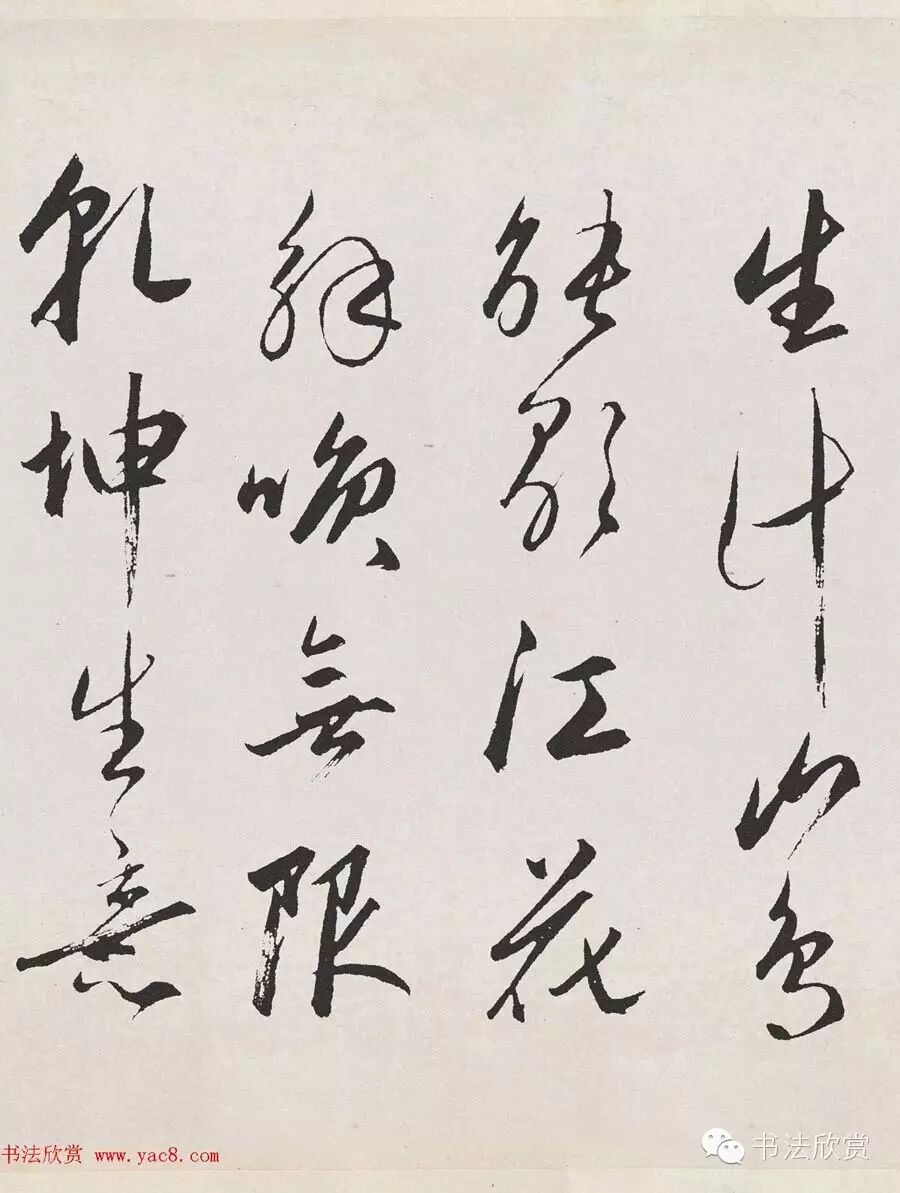 生计山鸟
能歌江花
解唤无限
乾坤生意
书法欣赏 www.yac8.com
书法欣赏